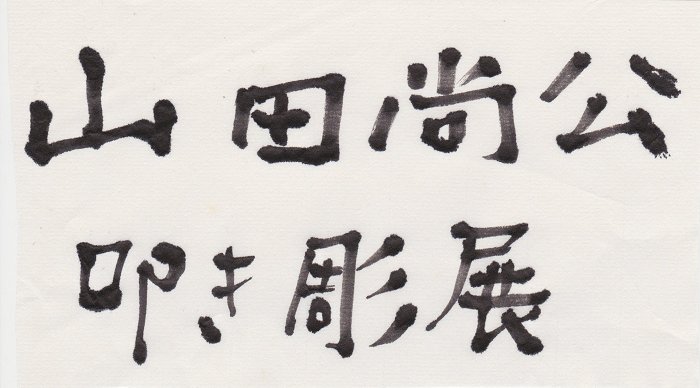 山田尚公
叩き彫展